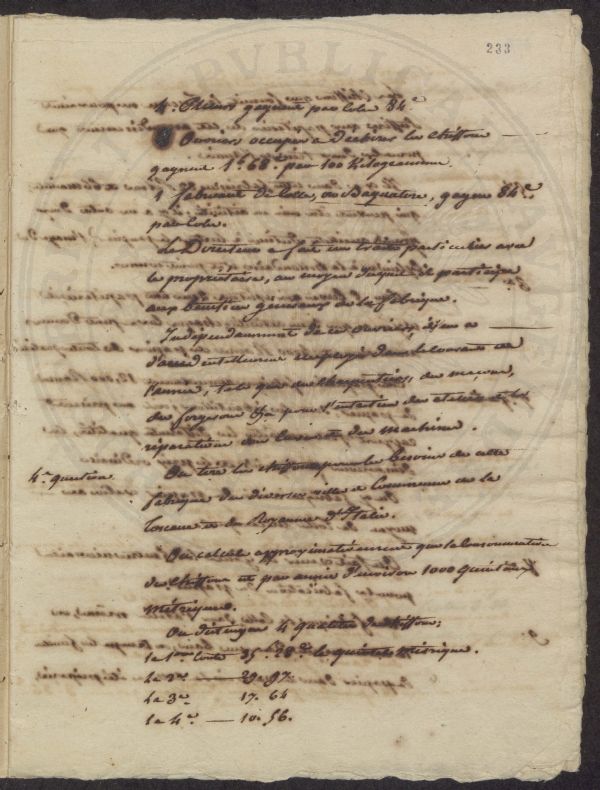 233
4. Pileurs gagnent par colo 84.c
8 Ouvriers occupés a dechirer les chiffons
gagnent 1.f 68. par 100 Kilogrammes.
1 fabricant de Colle, ou Baquature, gagne 84.c
par Colo.
Le Directeur a fait un traité particulier avec
le propriétaire, au moyen duquel il participe
aux bénéfices généraux de la fabrique.
Independamment de ces ouvriers, il y en a
d'accidentellement employés dans le courant de
l'année, tels que des charpentiers, des maçons,
des forgerons &c. pour l'entretien des ateliers et les
réparations des machines.
4.e question
On tire les chiffons pour le besoin de cette
fabrique des diverses villes & Communes de la
Toscane et du Royaume d'Italie.
On calcule approximativement que la Consommation
de chiffons est par année d'environ 1000 quintaux
métriques.
On distingue 4 qualités de chiffons:
la 1.re coute 35.f 28.c le quintal métrique.
la 2.e — 29. 97.
la 3.e 17. 64
la 4.e — 10. 56.